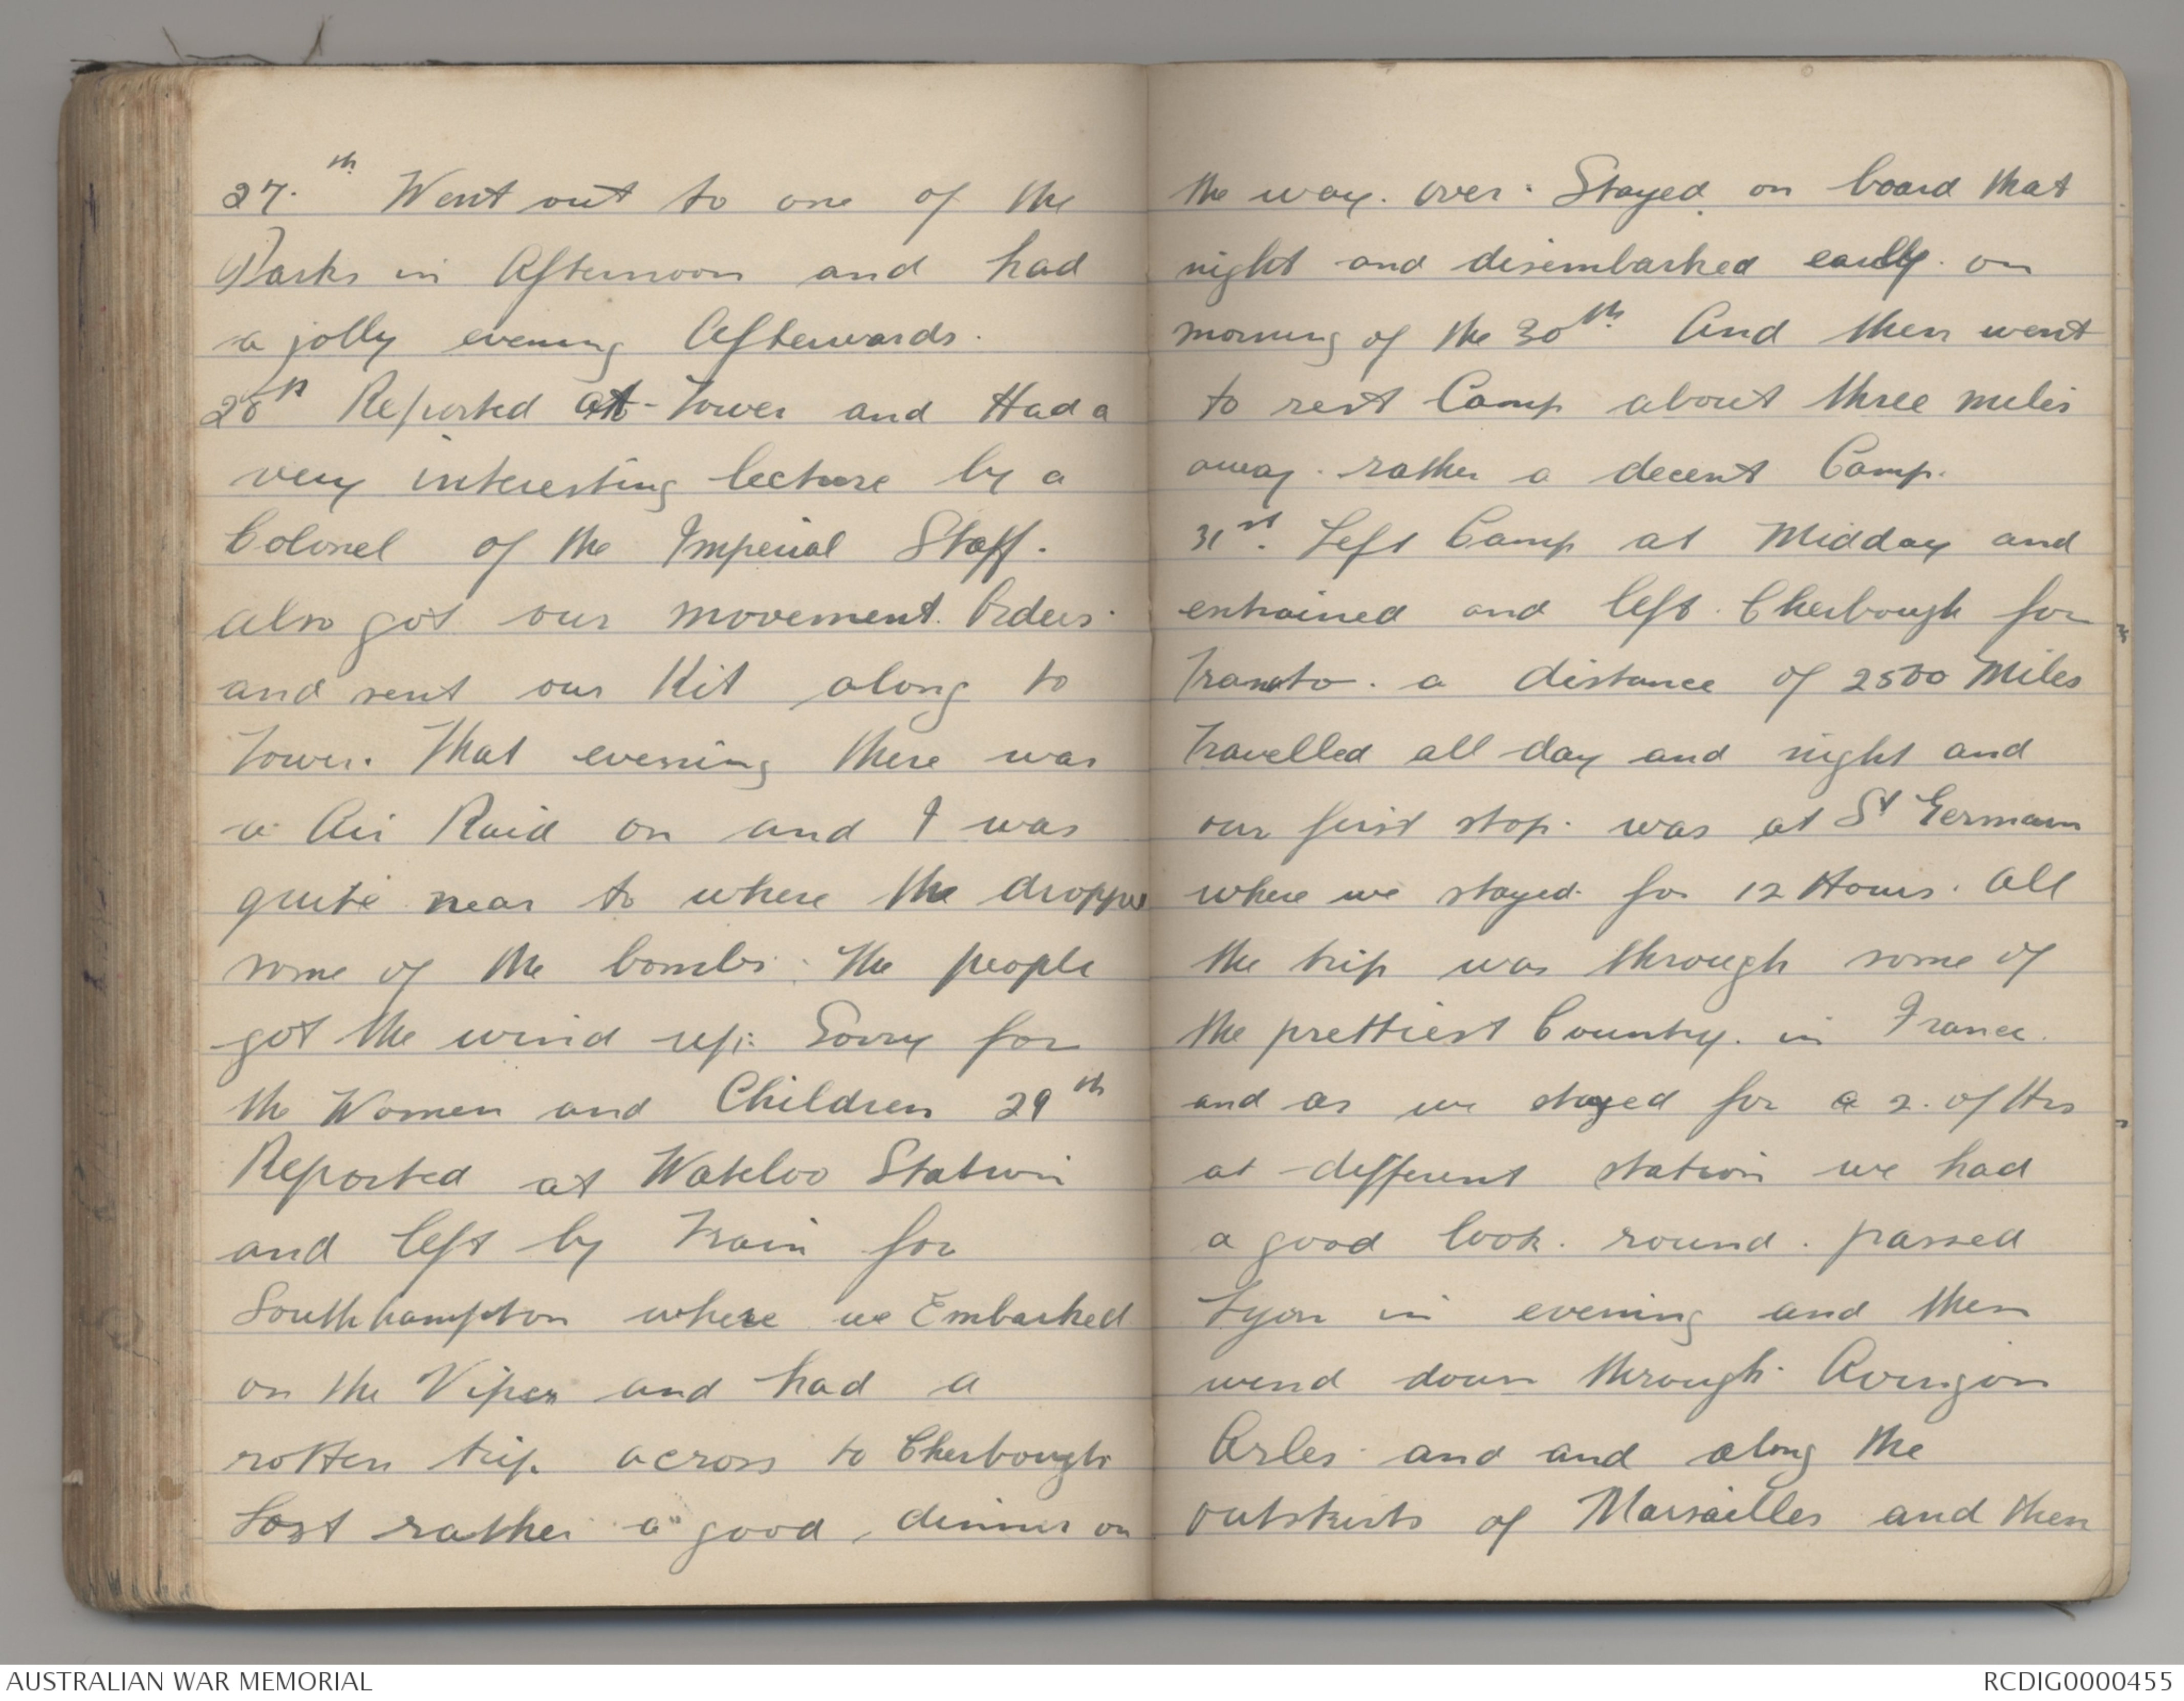 27.th Went out to one of the
Parks in Afternoon and had
a jolly evening Afterwards.
28th Reported at Tower and Had a
very interesting lecture by a
Colonel of the Imperial Staff.
also got our movement. Orders.
and sent our Kit along to
Tower. That evening there was
a Air Raid on and I was
quite near to where the dropped
some of the bombs. The people
got the wind up: Sorry for
the Women and Children 29th
Reported at Wateloo Station
and left by Train for
Southhampton where we Embarked
on the Viper and had a
rotten trip. across to Cherbough
Lost rather a good dinner on
the way. over. Stayed on board that
night and disembarked early. on
morning of the 30th. And then went
to rest Camp about three miles
away. rather a decent Camp.
31st. Left Camp at Midday and
entrained and left. Cherbough for
Tranato. a distance of 2500 Miles
Travelled all day and night and
our first stop. was at St Germain
where we stayed. for 12 Hours. All
the trip was through some of
the prettiest Country. in France.
and as we stayed for a 2. of Hrs
at different station we had
a good look. round. passed
Lyon in evening and then
wend down through. Avingon
Arles and and along the
outskirts of Marsailles and then
AUSTRALIAN WAR MEMORIAL
RCDIG0000455